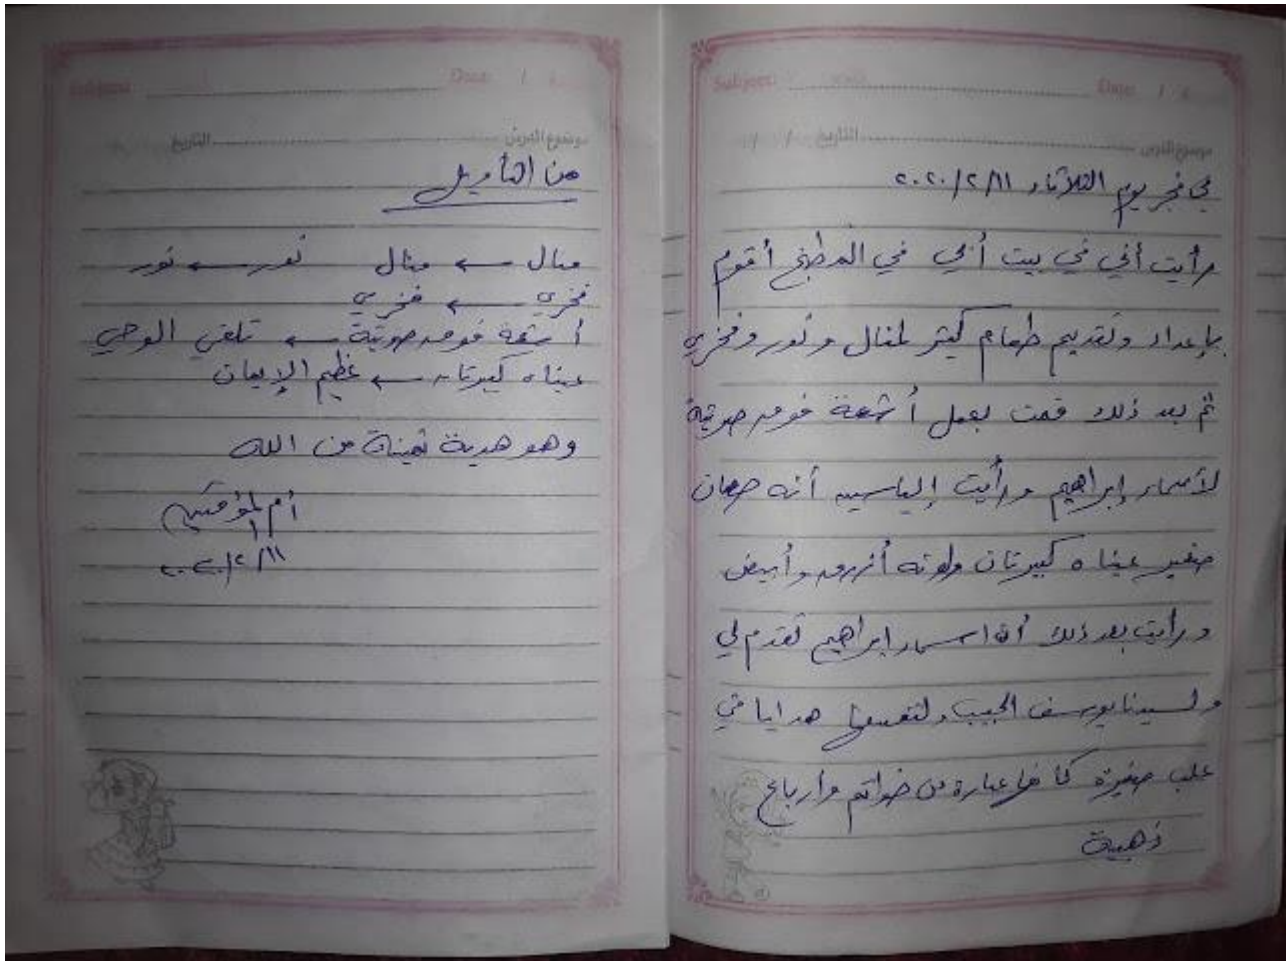 Subject: Date: / /
موضوع الدرس التاريخ / /
في فجر يوم الثلاثاء ٢٠٢٠/٢/١١
رأيت أني في بيت أبي في المطبخ أقوم
بإعداد وتقديم طعام كيثر لمنال ونور وفخري
ثم بعد ذلك قمت بعمل أشعة فوق صوتية
لأسماء إبراهيم ورأيت إلياسين أنه حصان
صغير عيناه كبيرتان ولونه أزرق وأبيض
ورأيت بعد ذلك أن اسماء إبراهيم تقدم لي
ولسيدنا يوسف الحبيب ولنفسها هدايا في
علب صغيرة كما هي عبارة عن خواتم وأرباع
ذهبية
Subject: Date: / /
موضوع الدرس التاريخ
من التأويل
منال ← منال نور ← نور
فخري ← فخري
أشعة فوق صوتية ← تلقي الوحي
عيناه كبيرتان ← عظيم الإيمان
وهو هدية ثمينة من الله
أم المؤمنين
٢٠٢٠/٢/١١